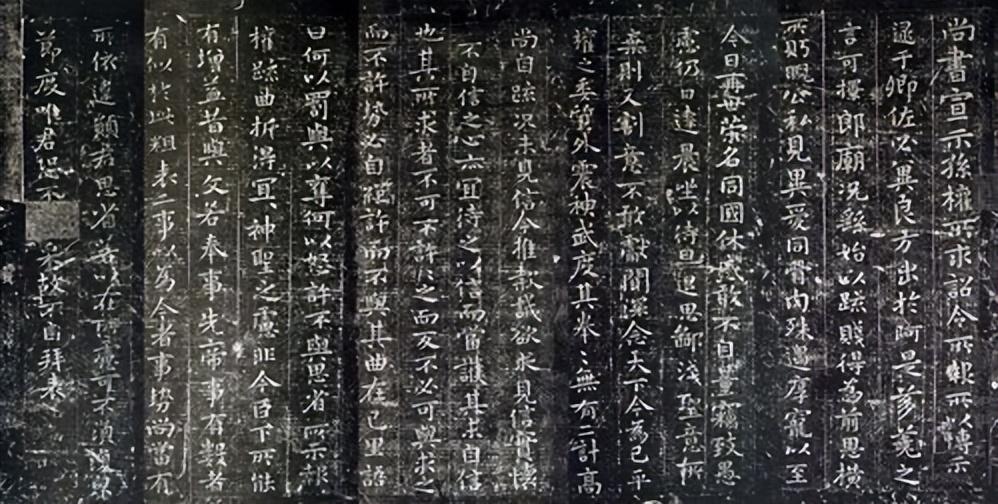 尚書宣示孫權所求詔令所報所以博示
逮于卿佐必異良方出於阿是芻蕘之
言可擇郎廟況繇始以疏賤得為前恩橫
所盻睨公私見異愛同骨肉殊遇厚寵以至
今日再世榮名同國休慼敢不自量竊致愚
慮仍日達晨坐以待旦退思鄙淺聖意所
棄則又割意不敢獻聞深念天下今為已平
權之委質外震神武度其拳〻無有二計高
尚自疏況未見信今推款誠欲求見信實懷
不自信之心亦宜待之以信而當護其未自信
也其所求者不可不許〻之而反不必可與求之
而不許勢必自絕許而不與其曲在己里語
曰何以罰與以奪何以怒許不與思省所示報
權疏曲折得宜〻神聖之慮非今臣下所能
有增益昔與文若奉事先帝事有數者
有似於此粗表二事以為今者事勢尚當有
所依違願君思省若以在所慮可不須復
節度唯君恐不采故不自拜表